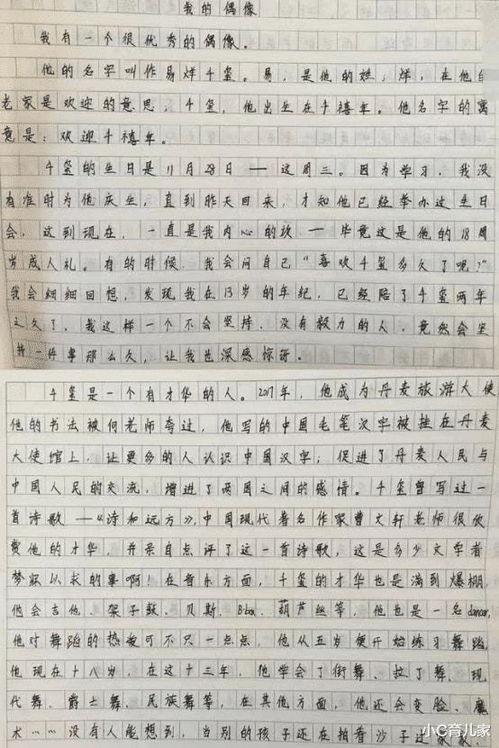 我的偶像
我有一个很优秀的偶像。
他的名字叫作易烊千玺。易，是他的姓；烊，在他的
老家是欢迎的意思；千玺，他出生在千禧年。他名字的寓
意是：欢迎千禧年。
千玺的生日是11月28日——这周三。因为学习，我没
有准时为他庆生，直到昨天回来，才知他已经举办过生日
会，这到现在，一直是我内心的坎——毕竟这是他的18周
岁成人礼。有的时候，我会问自己“喜欢千玺多久了呢？”
我会细细回想，发现我在13岁的年纪，已经陪了千玺两年
之久了，我这样一个不会坚持、没有毅力的人，竟然会坚
持一件事那么久，让我也深感惊讶。
千玺是一个有才华的人。2017年，他成为丹麦旅游大使
他的书法被何老师夸过，他写的中国毛笔汉字被挂在丹麦
大使馆上，让更多的人认识中国汉字；促进了丹麦人民与
中国人民的交流，增进了两国之间的感情。千玺曾写过一
首诗歌——《诗和远方》，中国现代著名作家曹文轩老师很欣
赏他的才华，并亲自点评了这一首诗歌，这是多少文学者
梦寐以求的事啊！在音乐方面，千玺的才华也是满到爆棚，
他会吉他、架子鼓、贝斯、B-box、葫芦丝等，他也是一名dancer，
他对舞蹈的热爱可不只一点点，他从五岁便开始练习舞蹈，
他现在十八岁，在这十三年，他学会了街舞、拉丁舞、现
代舞、爵士舞、民族舞等，在其他方面，他还会变脸、魔
术……没有人能想到，当别的孩子还在拍着沙子过家家
小C育儿家